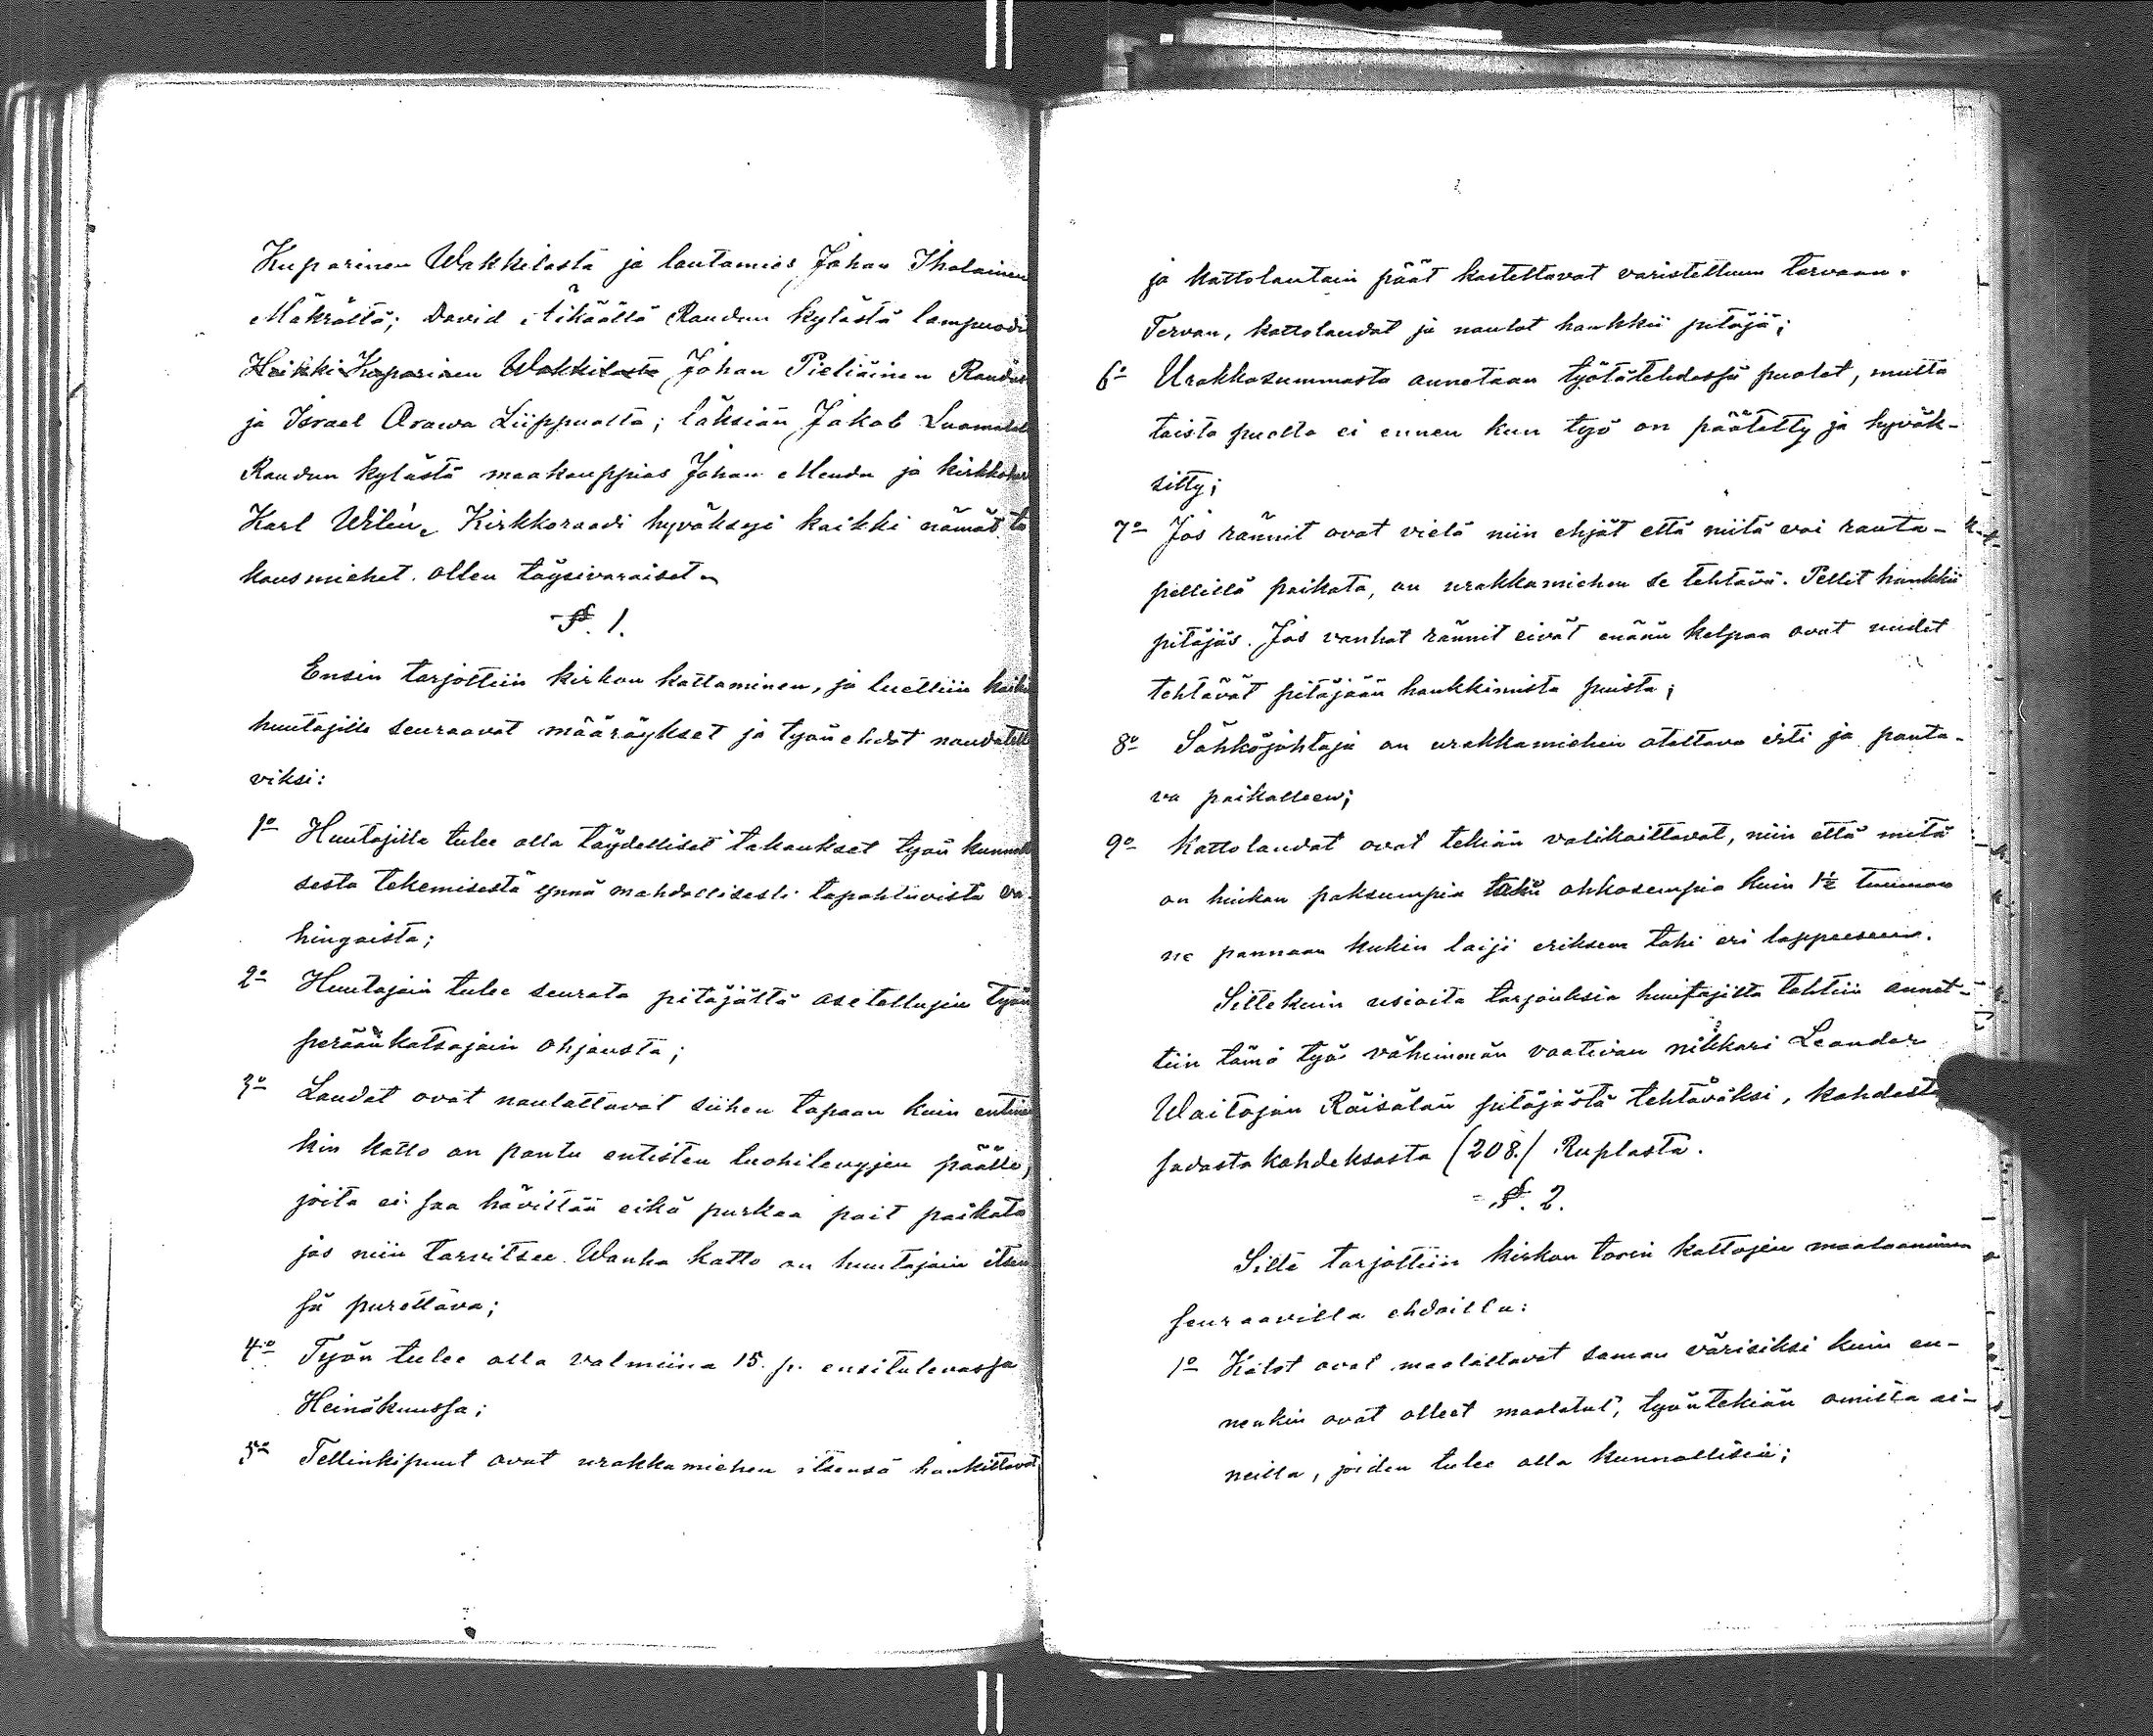 Kuparinen Wakkilasta ja lautamies Johan Ihalainen
Mäkrältä; David Äikäältä Raudun kylästä lampuodi
Heikki Kuparinen Wakkilasta Johan Pieliäinen Raudu
ja Israel Orawa Liippualta; läksiän Jakob Luoma
Raudun kylästä maakauppias Johan Mendu ja kirkko
Karl Wilén. Kirkkoraadi hyväksyi kaikki nämät ta
kausmiehet ollen täysivaraiset.
§. 1.
Ensin tarjottiin kirkon kattaminen, ja luettiin kaik
huutajille seuraavat määräykset ja työn ehdot noudatet
viksi:
1o Huutajilla tulee olla täydelliset takaukset työn kunnol
sesta tekemisestä ynnä mahdollisesti tapahtuvista va-
hingoista;
2o Huutajain tulee seurata pitäjältä asetettujen työn
perään katsojain ohjausta;
3o Laudat ovat naulattavat siihen tapaan kuin entine
kin katto on pantu entisten luohilevyjen päälle,
joita ei saa hävittää eikä purkaa pait paikata
jos niin tarvitsee. Wanha katto on huutajain itsen
sä purettava;
4o Työn tulee olla valmiina 15. p. ensitulevassa
Heinäkuussa;
5o Tellinkipuut ovat urakkamiehen itsensä hankittavat
ja kattolautain päät kastettavat varistettuun tervaan.
Tervan, kattolaudat ja naulat hankkii pitäjä;
6o Urakkasummasta annetaan työtätehdessä puolet, mutta
toista puolta ei ennen kun työ on päätetty ja hyväk-
sitty;
7o Jos rännit ovat vielä niin ehjät että niitä voi rauta-
pellillä paikata, on urakkamiehen se tehtävä. Pellit hankkii
pitäjäs. Jos vanhat rännit eivät enään kelpaa ovat uudet
tehtävät pitäjään hankkimista puista;
8o Sähköjohtaja on urakkamiehen otettava irti ja panta-
va paikalleen;
9o Kattolaudat ovat tekiän valikoittavat, niin että mitä
on hiukan paksumpia tahi ohkosempia kuin 1½ tuuman
ne pannaan kukin laiji erikseen tahi eri lappeeseen.
Sittekuin usioita tarjouksia huutajilta tehtiin annet-
tiin tämä työ vähimmän vaativan nikkari Leander
Waitojan Räisälän pitäjästä tehtäväksi, kahdesta
sadasta kahdeksasta (208.) Ruplasta.
§. 2.
Sitte tarjottiin kirkon tornin kattojen maalaaminen
seuraavilla ehdoilla:
1o Katot ovat maalattavat saman värisiksi kuin en-
nenkin ovat olleet maalatut, työntekiän omilla ai-
neilla, joiden tulee olla kunnollisia;